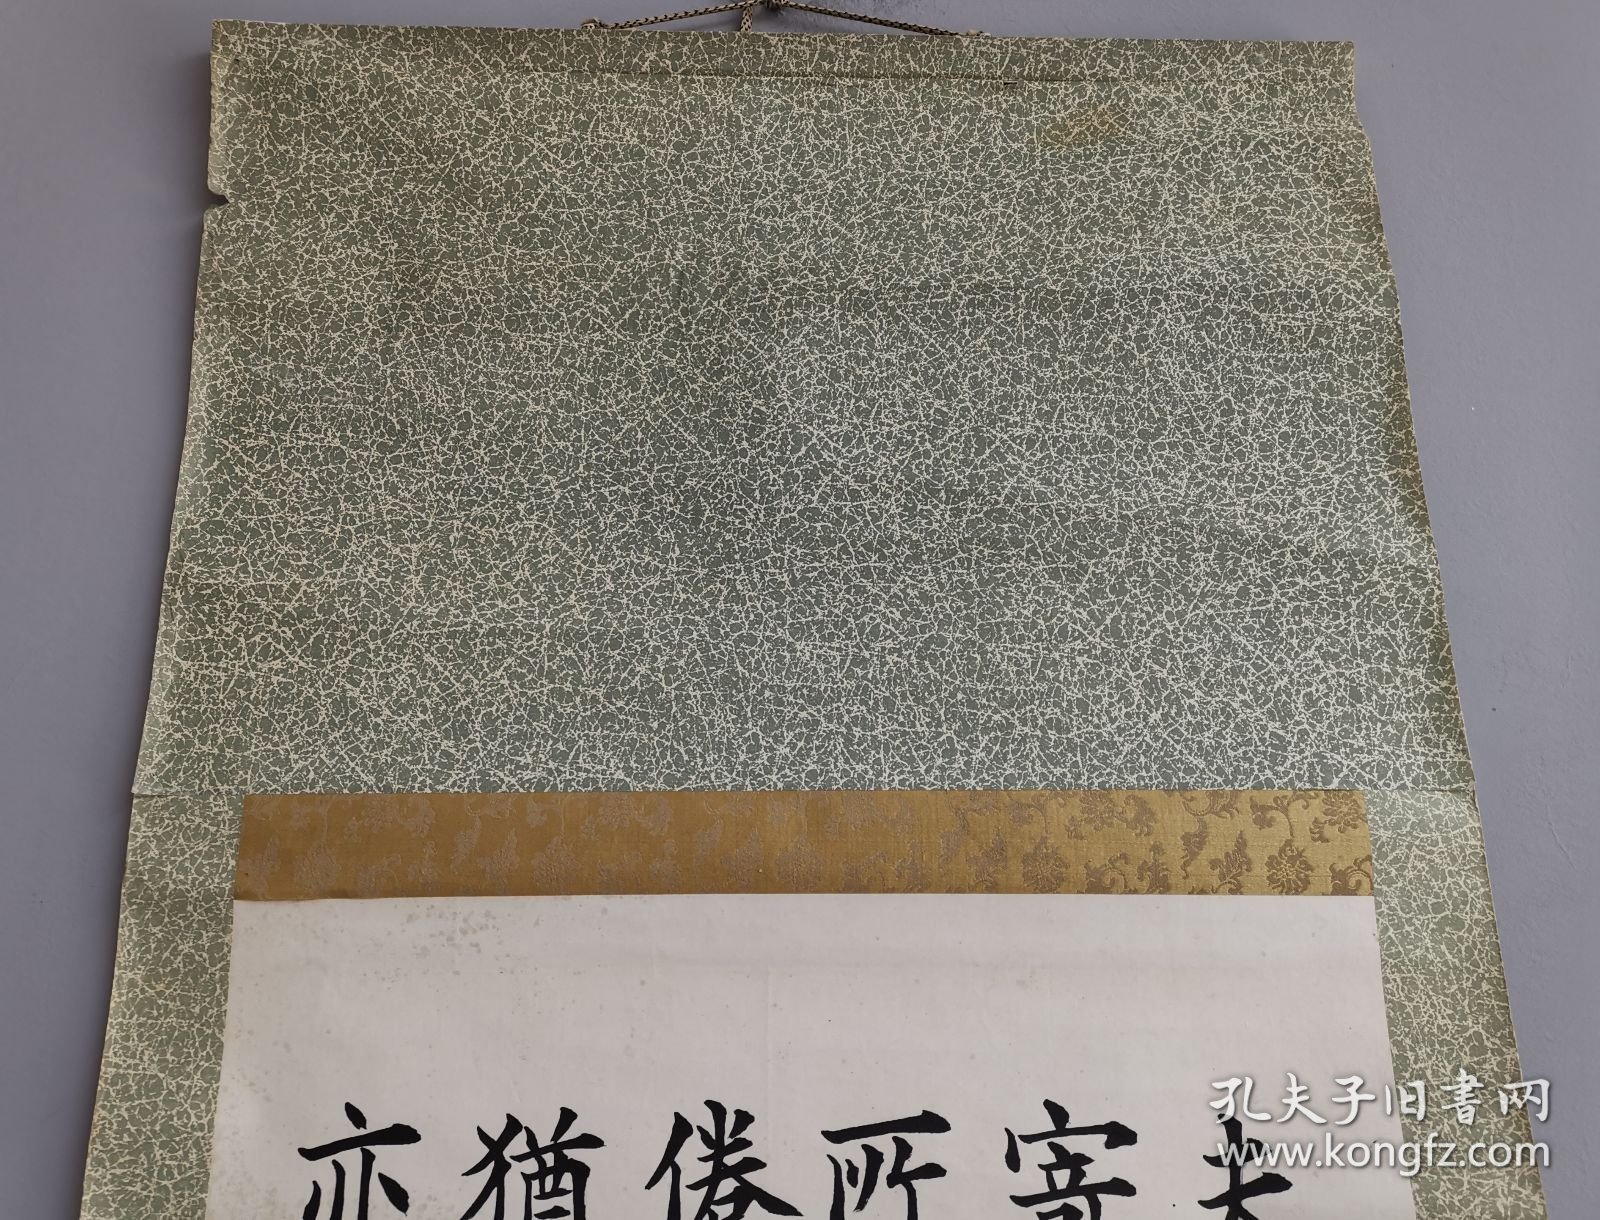 夫
寄
所
倦
猶
亦
孔夫子旧书网
www.kongfz.com